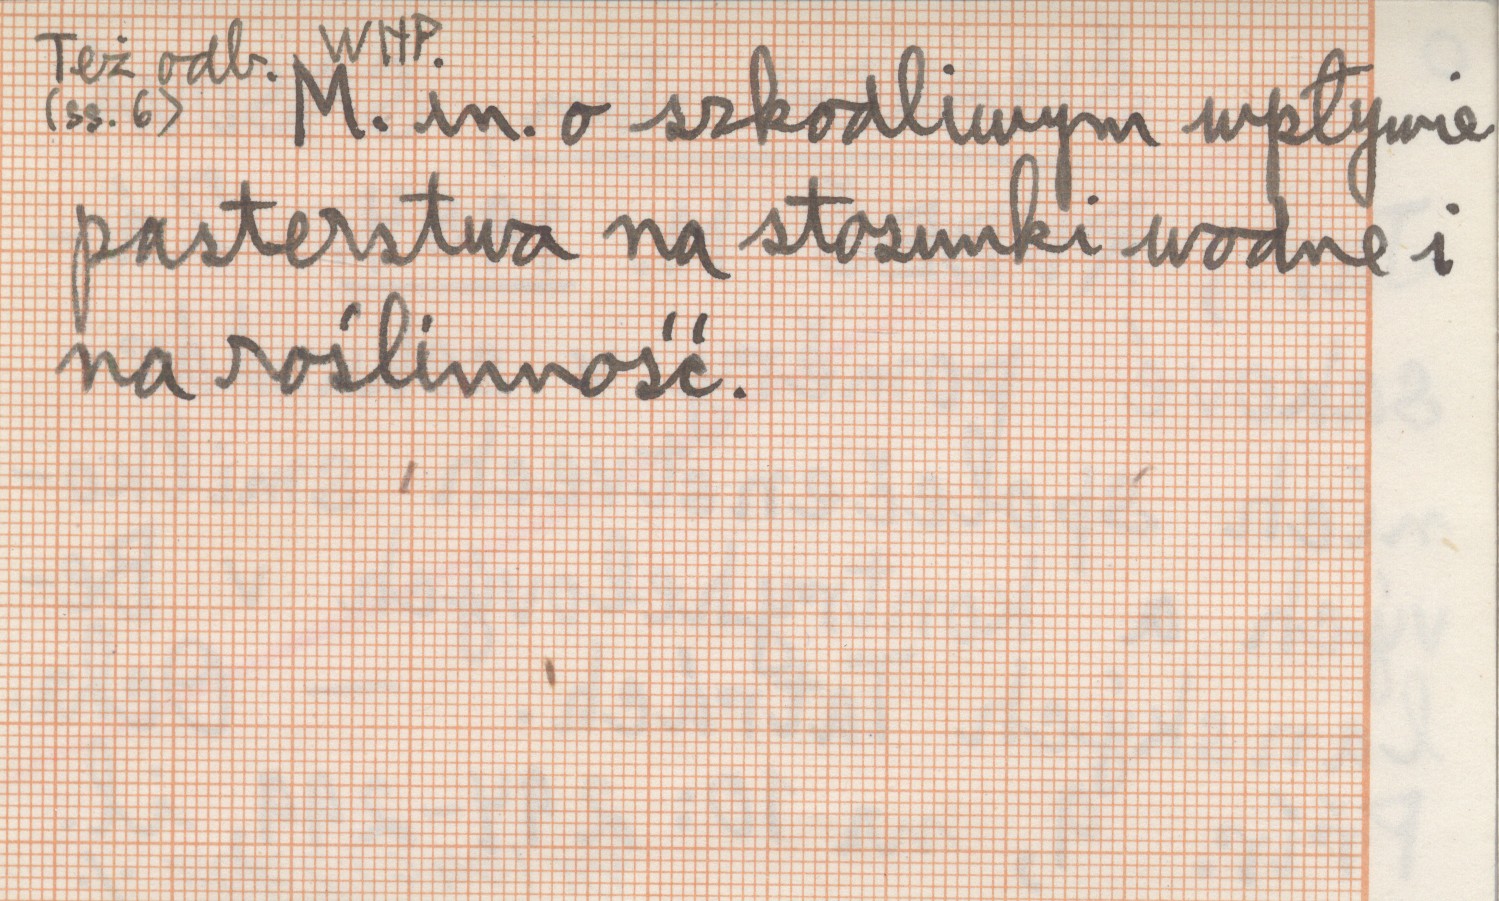 Też odb. WHP.
(ss. 6) M. in. o szkodliwym wpływie
pasterstwa na stosunki wodne i
na roślinność.